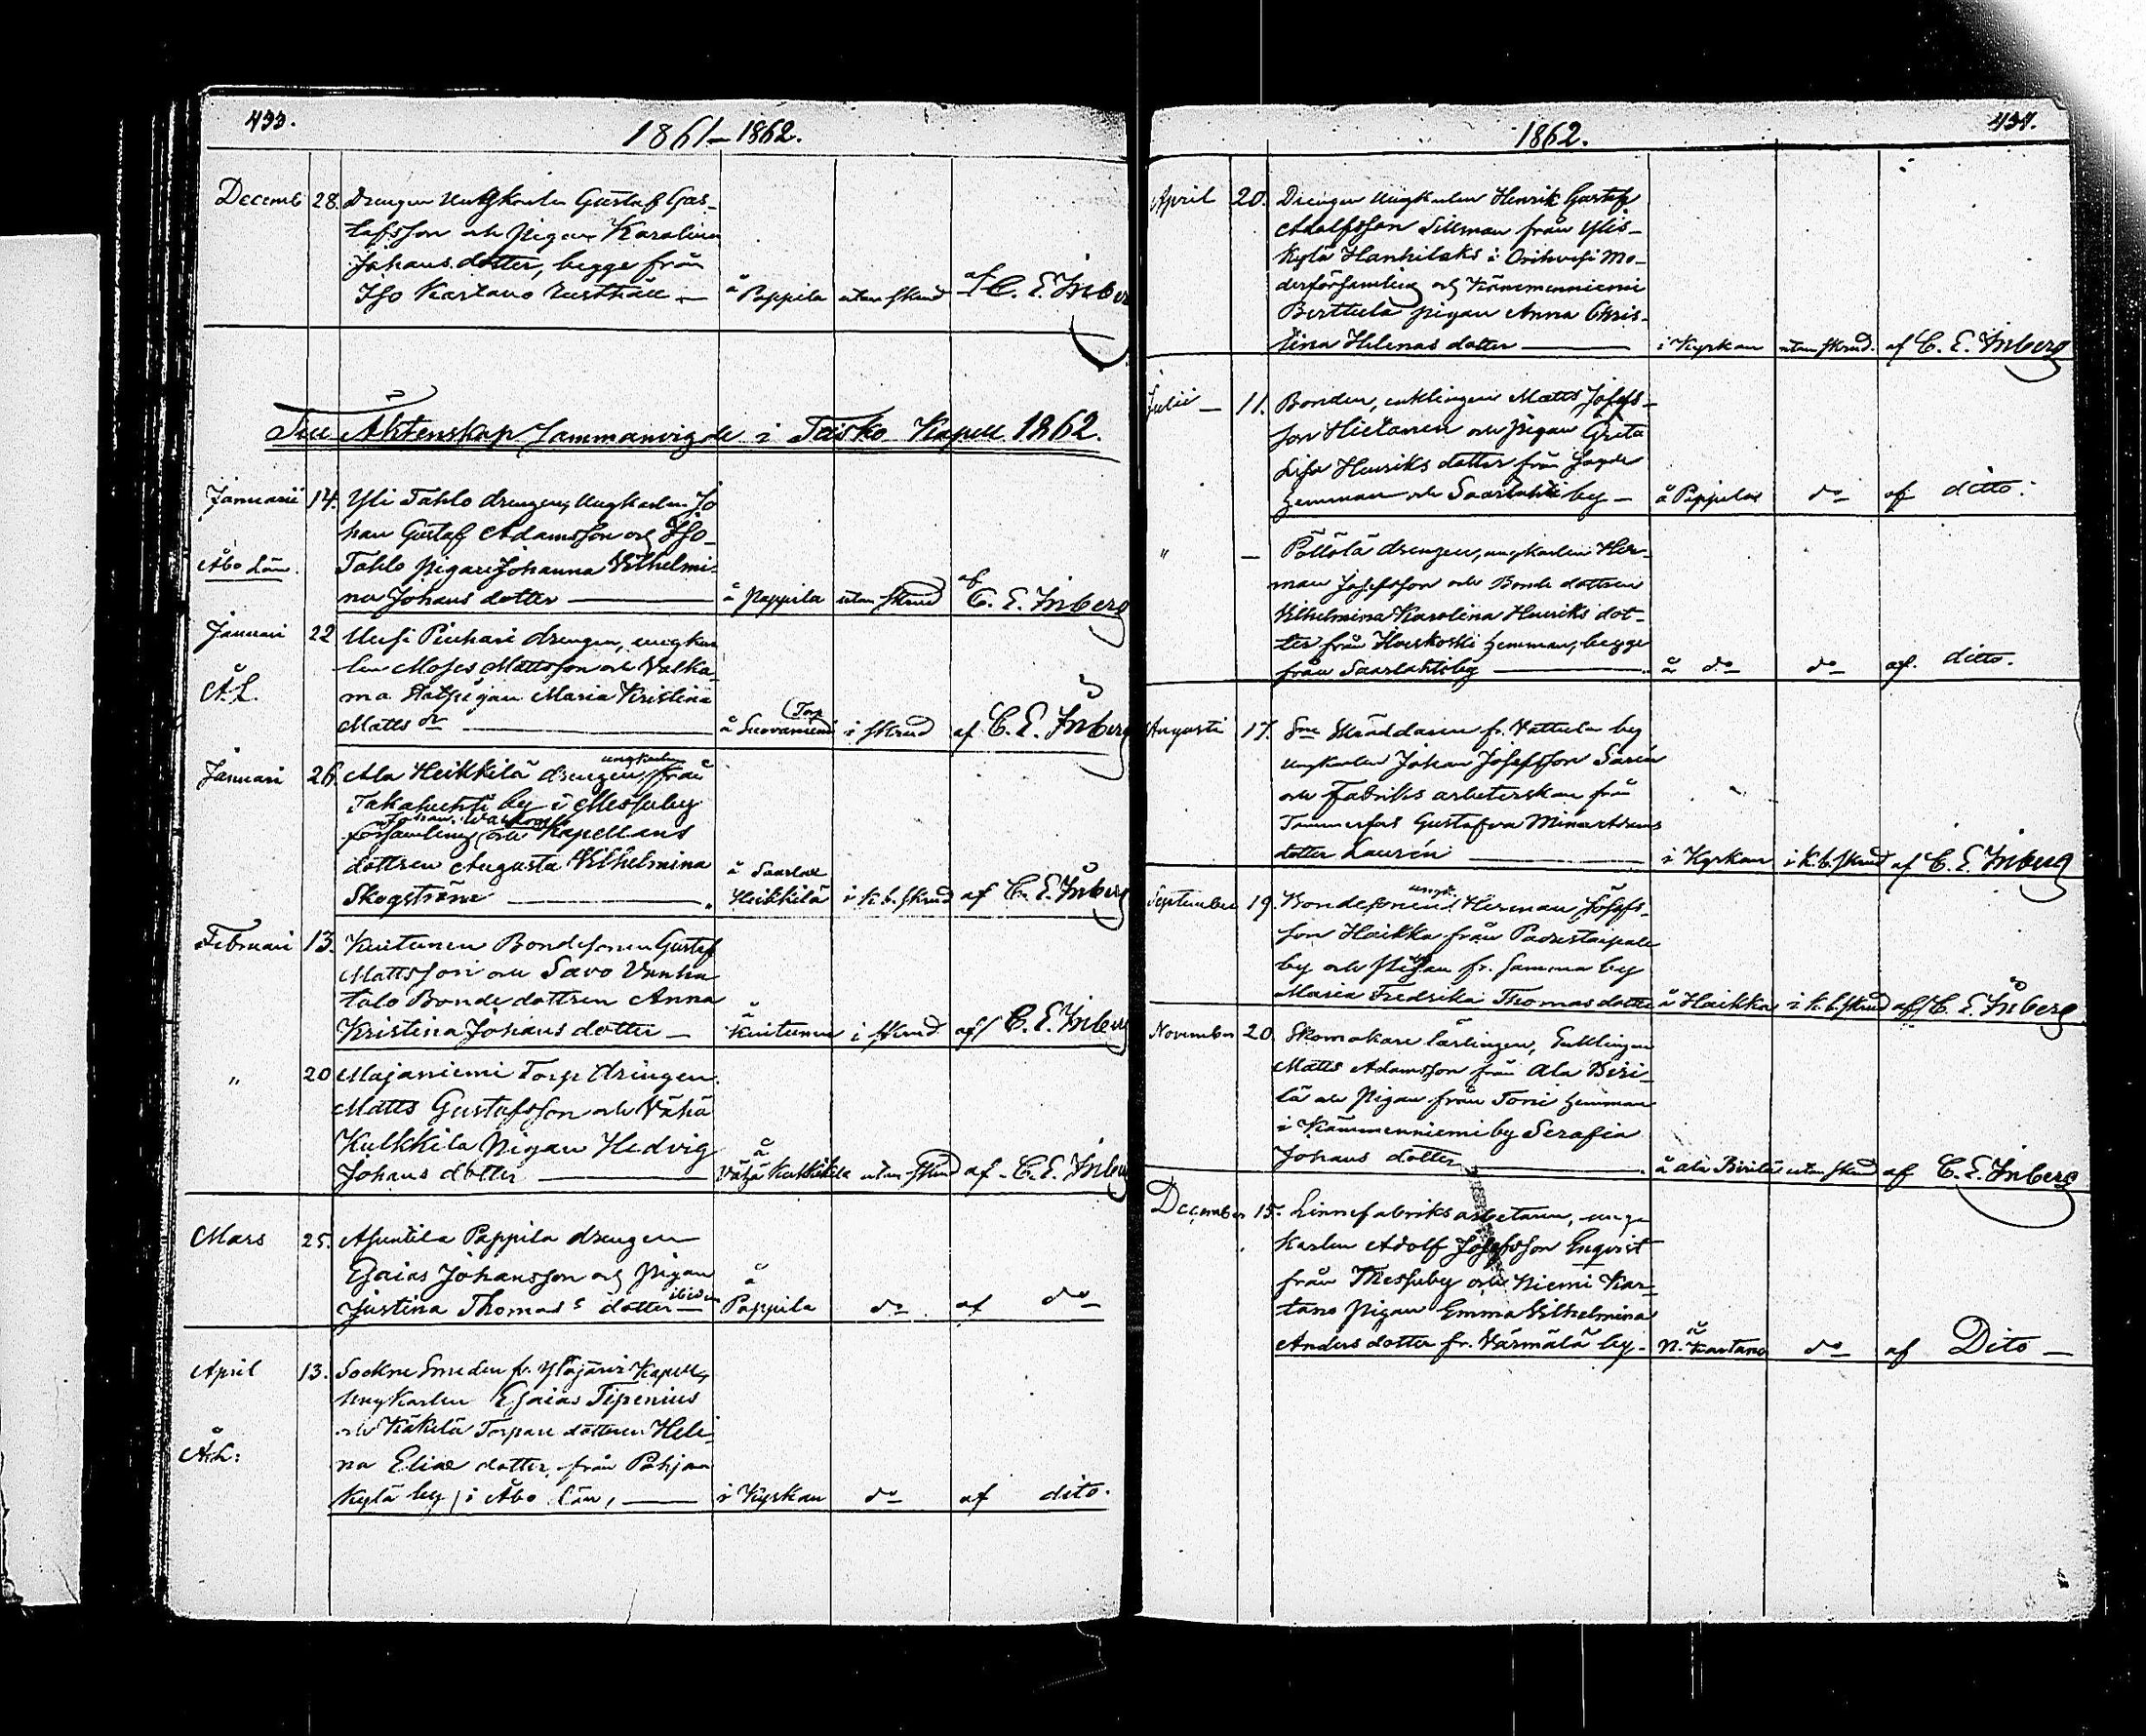 433.
1861–1862.
Decemb 28. Drengen Ungkarlen Gustaf Gus-
tafsson och Pigan Karolina
Johans dotter, begge från
Iso Kartano Rusthåll — å Pappila utan skrud af C. E. Inberg
Till Ähtenskap Sammanvigde i Teisko Kapell 1862.
Januarii 14. Yli Tahlo drengen, Ungkarlen Jo
han Gustaf Adamsson och Iso-
Åbo Län. Tahlo pigan Johanna Vilhelmi-
na Johans dotter — å Pappila utan skrud af C. E. Inberg
Januari 22 Uusi Pinhari drengen, ungkar
len Moses Mattsson och Valka-
Å.L. ma pigan Maria Kristina
Matts dr — å Suovaniemi Torp i skrud af C. E. Inberg
Januari 26. Ala Heikkilä drengen, ungkarlen från
Takahuhti by i Messuby
församling Johan och Kapellans
dottren Augusta Vilhelmina
Skogström — å Saarlax Heikkilä i k. b. skrud af C. E. Inberg
Februari 13. Kuitunen Bondesonen Gustaf
Mattsson och Savo Vanha
talo Bonde dottren Anna
Kristina Johans dotter — å Kuitunen i skrud af C. E. Inberg
" 20 Majaniemi Torp drengen
Matts Gustafsson och Vähä
Kulkkila Pigan Hedvig
Johans dotter — å Vähä Kulkkila utan skrud af C. E. Inberg
Mars 25. Asuntila Pappila drengen
Esaias Johansson och Pigan
Justina Thomas dotter — å Pappila do af do
April 13. Sockne Smeden fr. Ylöjärvi Kapell,
Ungkarlen Esaias Tipenius
och Käkelä Torpare dottren Hele-
Å.L: na Eliae dotter, från Pohjan
Kylä by i Åbo län, — i Kyrkan do af dito.
437.
1862.
April 20. Drengen Ungkarlen Henrik Gustaf
Adolfsson Sillman från Ylis-
Kylä Hanhilaks i Orihvesi Mo-
derförsamling och Kämmenniemi
Berttula pigan Anna Chris-
tina Helenas dotter — i Kyrkan utan skrud. af C. E. Inberg
Julii — 11. Bonden, enklingen Matts Josefs-
son Hietanen och pigan Greta
Lisa Henriks dotter från
hemman och Saarlahti by — å Pappila do af ditto.
" — Pöllölä drengen, ungkarlen Her-
man Josefsson och Bonde dottren
Vilhelmina Karolina Henriks dot-
ter från Koskoski hemman, begge
från Saarlahti by — å do do af. ditto.
Augusti 17. Sne Skräddaren fr. Vattula by
ungkarlen Johan Josefsson Sarén
och Fabriks arbeterskan från
Tammerfors Gustafva Mina
dotter Laurén — i Kyrkan i k. b. skrud af C. E. Inberg
September 19. Bondesonen, ungk. Herman Josefs-
son Haikka från Padustaipale
by och Pigan fr. Samma by
Maria Fredrika Thomas dotter å Haikka i k. b. skrud af C. E. Inberg
November 20. Skomakare lärlingen, Enklingen
Matts Adamsson från Ala Biri-
lä och Pigan från Toni hemman
i Kämmenniemi by Serafia
Johans dotter — å Ala Birilä utan skrud af C. E. Inberg
December 15. Linnefabriks arbetaren, unga
karlen Adolf Josefsson Enqvist
från Messuby och Niemi Kar-
tano pigan Emma Vilhelmina
Anders dotter fr. Värmälä by - å N. Kartano do af Dito —